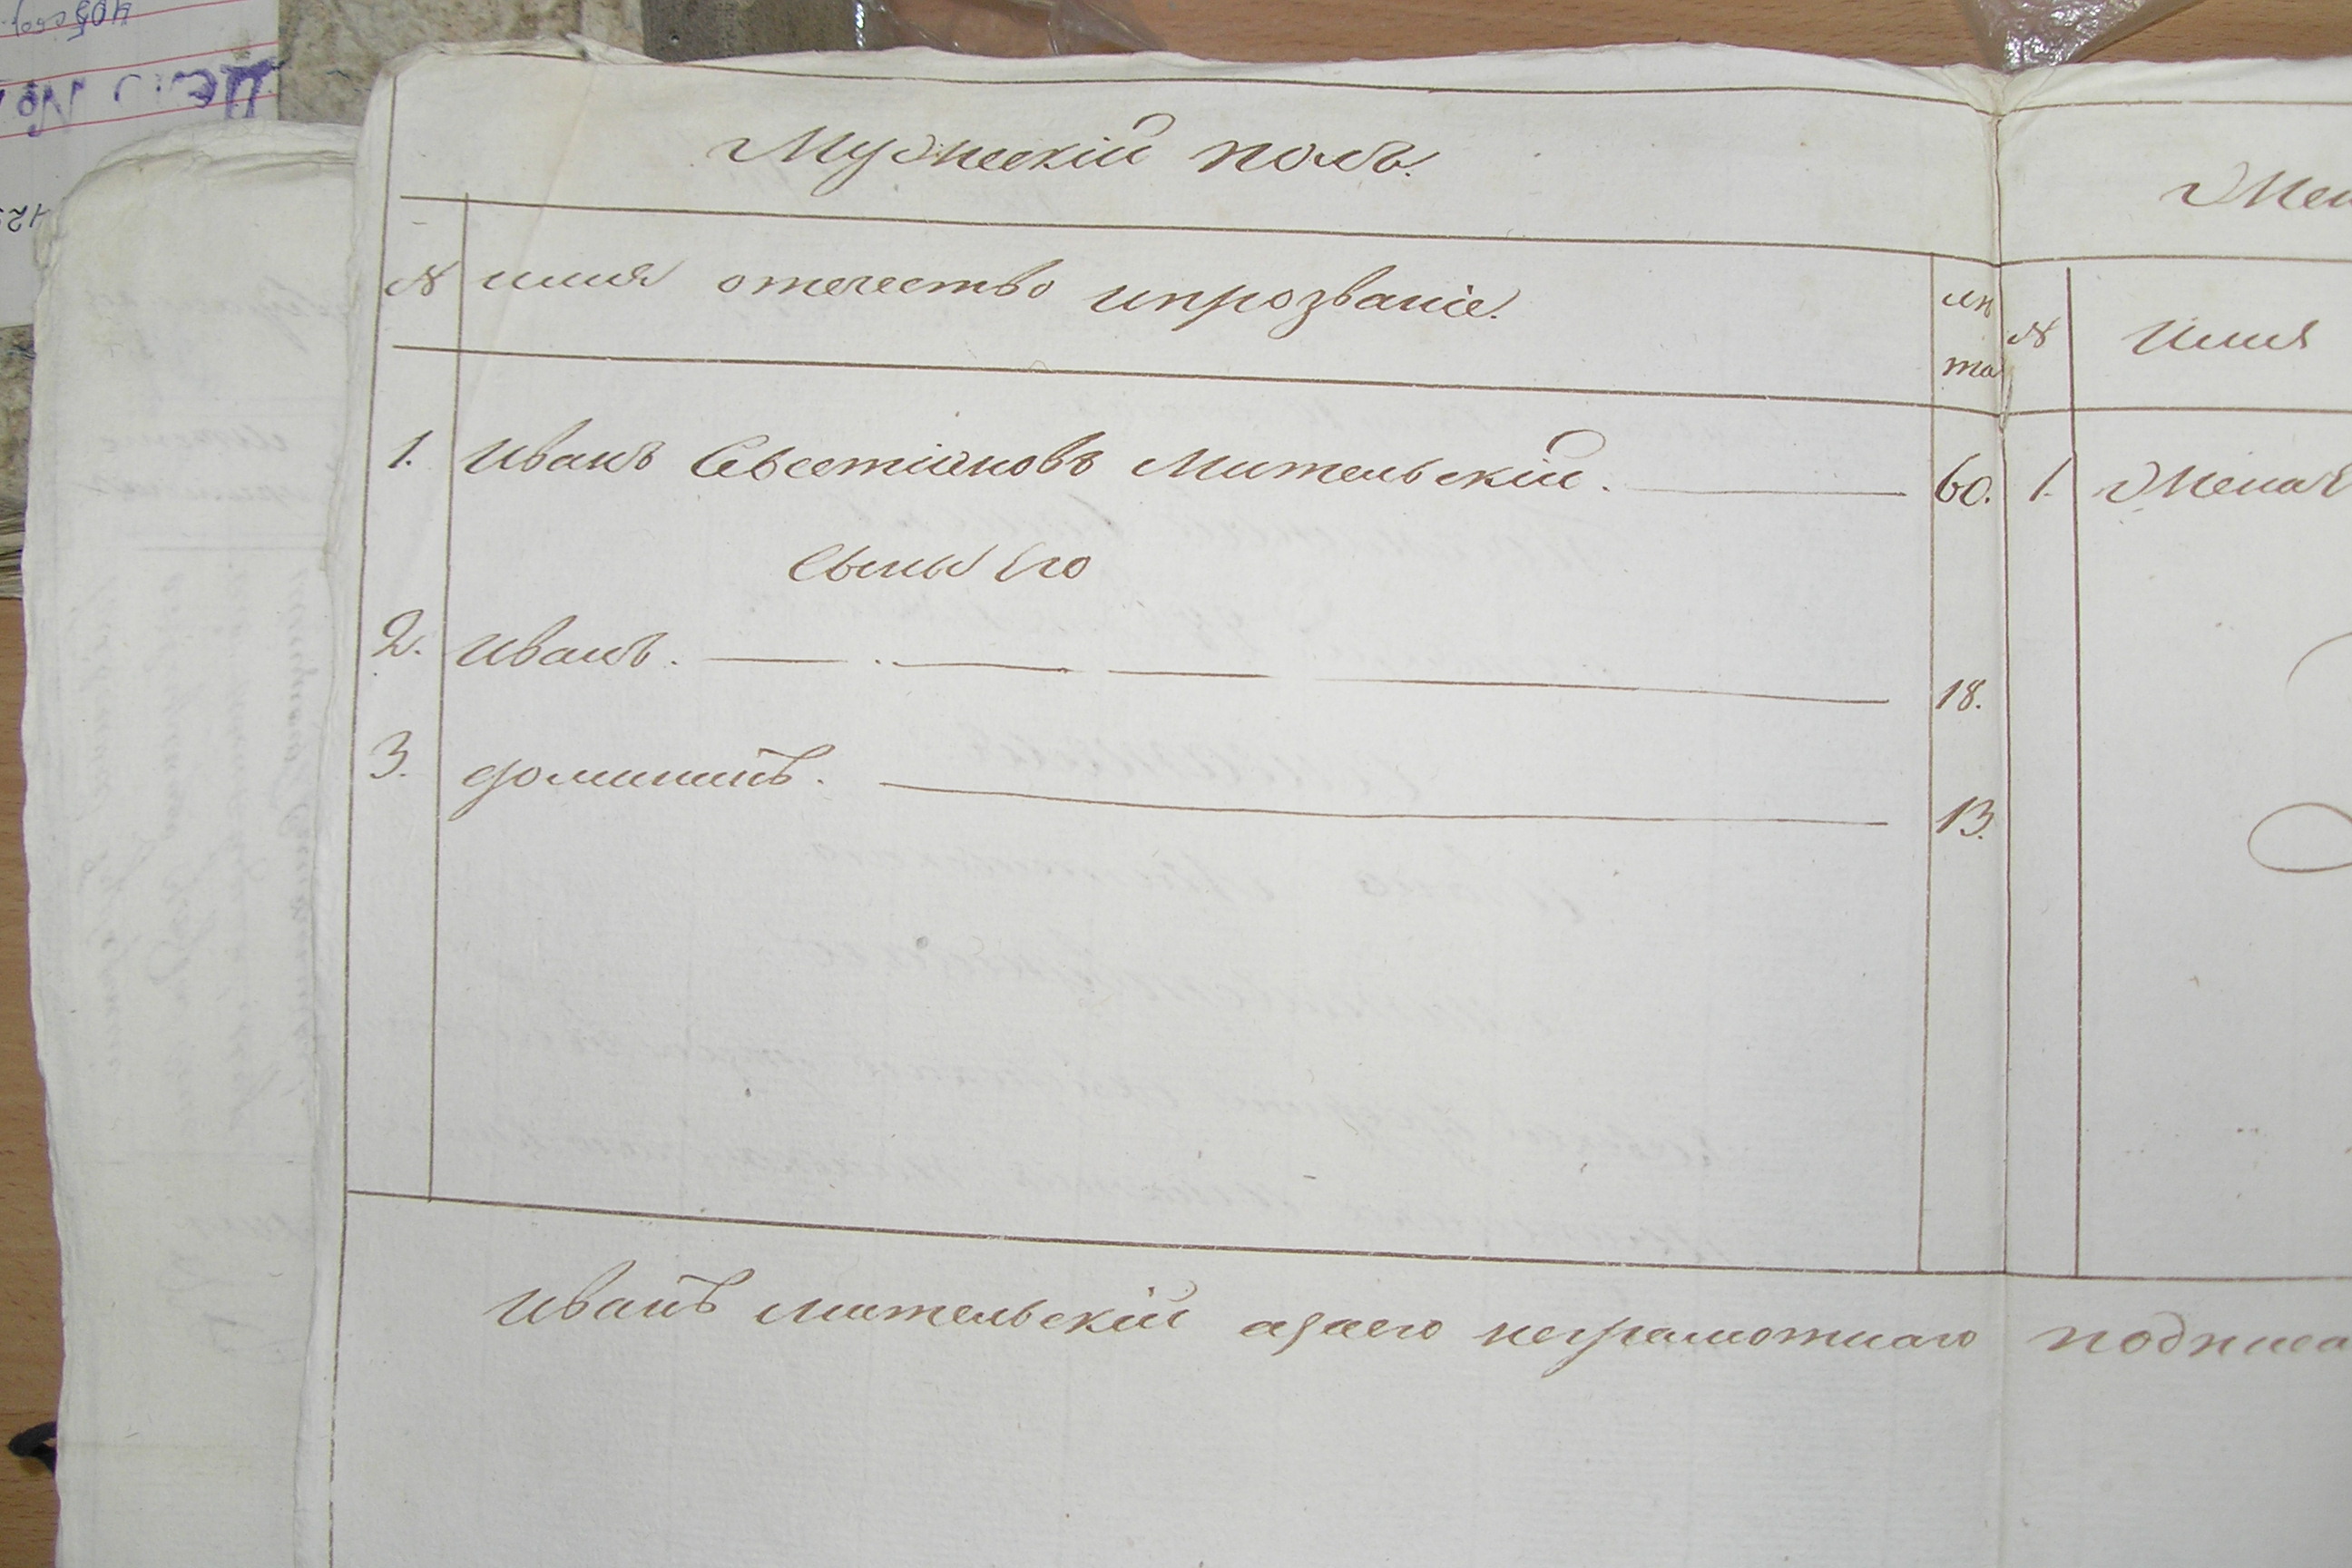 Мужескій полъ.
Жен
№ имя отечество ипрозваніе. лѣ
та
№ Имя
1. Иванъ Севестіяновъ Мительскій. 60. 1. Жена Е
Сыны Его
2. Иванъ. 18.
3. доминикъ. 13.
Иванъ Мительскій азаего неграмотнаго подписа